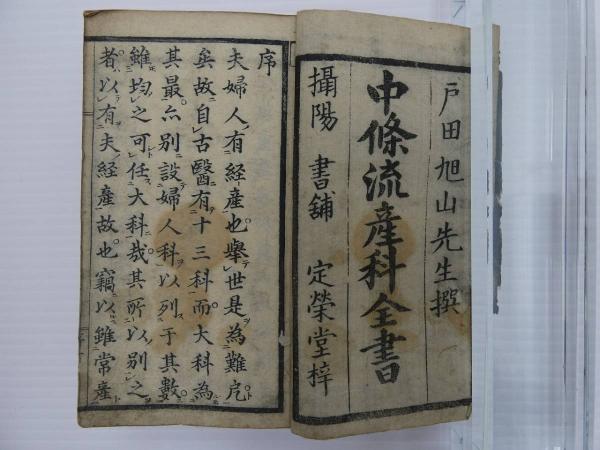 戸田旭山先生撰
中條流産科全書
攝陽 書舖 定榮堂梓
序
夫婦人有經産也擧世是為難戹
矣故自古醫有十三科而大科為
其最亦別設婦人科以列于其數
雖均之可任大科哉其所以別之
者以有夫經産故也竊以雖常産